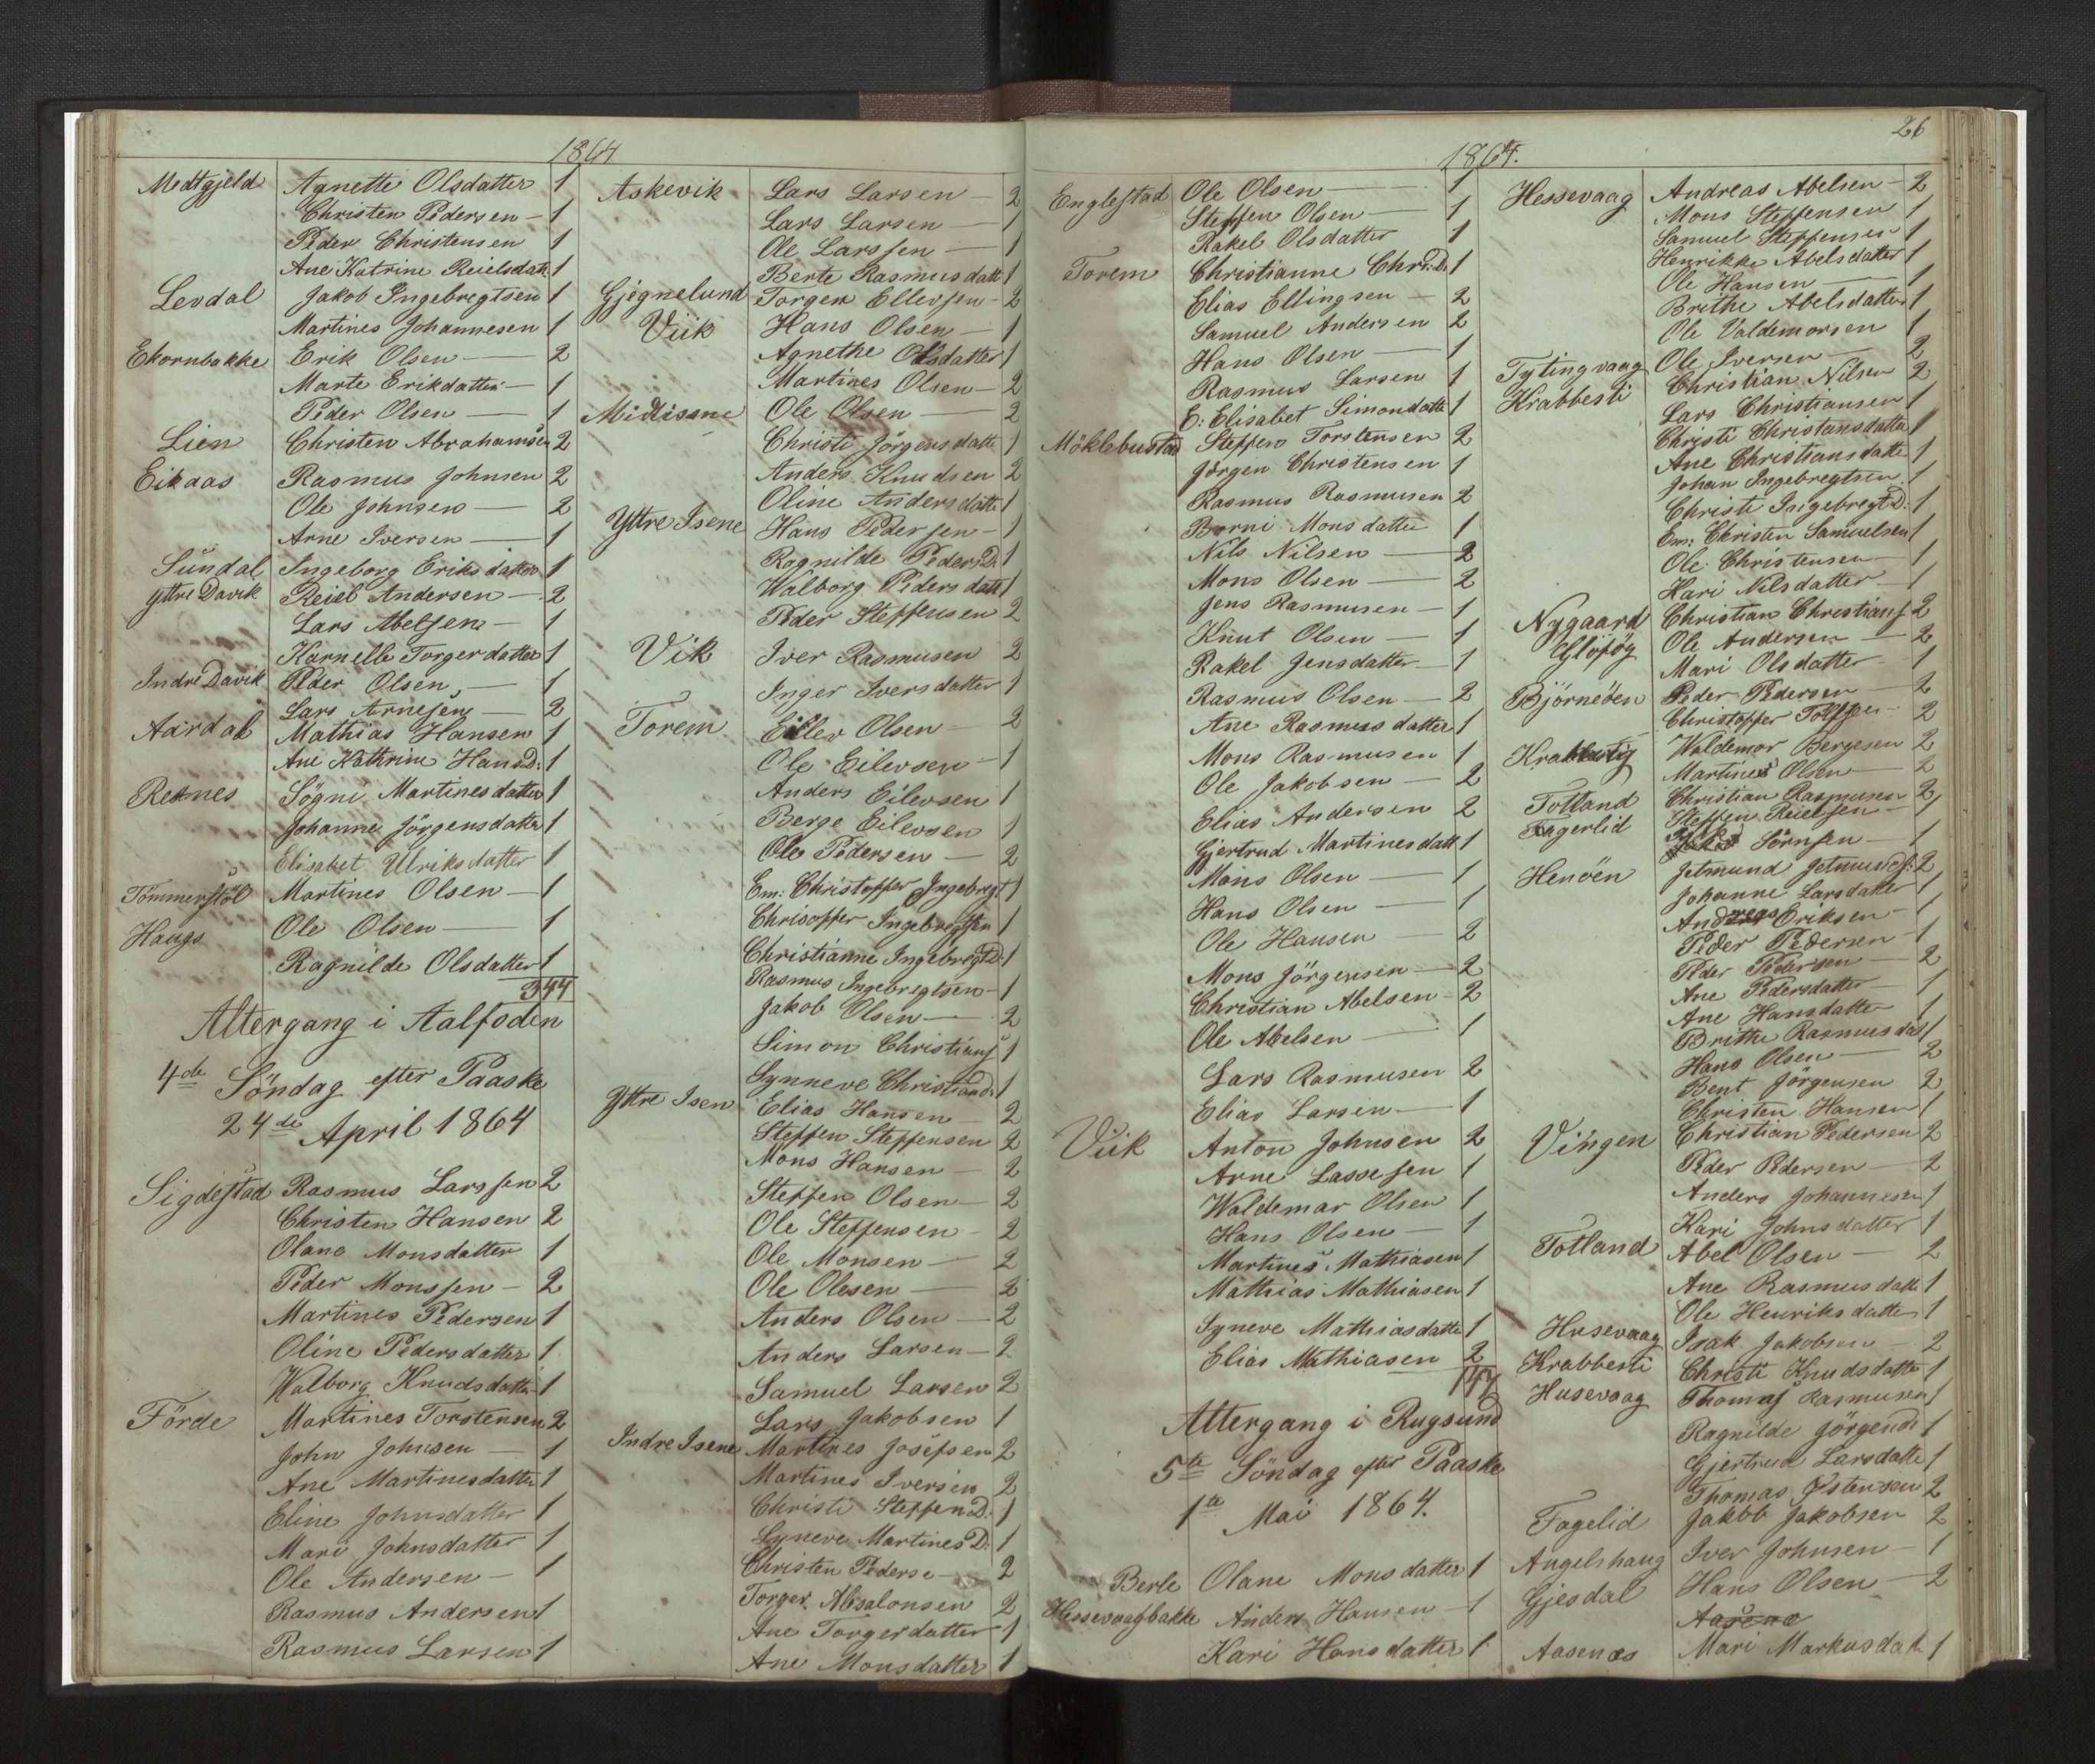 1864
Medtgjeld Agnette Olsdatter 1
Christen Pedersen - 1
Peder Christensen 1
Ane Katrine Reielsdatt 1
Levdal Jakob Ingebregtsen 1
Martines Johannesen 1
Ekornbakke Erik Olsen - 2
Marte Erikdatter - 1
Peder Olsen - 1
Lien Christen Abrahamsen 2
Eikaas Rasmus Johnsen 2
Ole Johnsen - 2
Arne Iversen - 1
Sundal Ingeborg Eriksdatter 1
Yttre Davik Reiel Andersen - 2
Lars Abelsen - 1
Karnelle Torgerdatter 1
Indre Davik Peder Olsen - 1
Lars Arnesen - 2
Aardal Mathias Hansen 1
Ane Kathrine HansD: 1
Rennes Sögni Martinesdatter 1
Johanne Jörgensdatter 1
Elisabet Ulriksdatter 1
Tömmerstöl Martines Olsen - 1
Haugs Ole Olsen - 1
Ragnilde Olsdatter 1
344
Altergang i Aalfoden
4de Söndag efter Paaske
24de April 1864
Sigdestad Rasmus Larssen 2
Christen Hansen 2
Olane Monsdatter 1
Peder Monssen - 2
Martines Pedersen 1
Oline Pedersdatter 1
Walborg Knudsdatter 1
Förde Martines Torstensen 2
John Johnsen - 1
Ane Martinesdatter 1
Eline Johnsdatter 1
Mari Johnsdatter 1
Ole Andersen - 1
Rasmus Andersen 1
Rasmus Larsen 1
Askevik Lars Larsen - 2
Lars Larsen - 1
Ole Larssen - 1
Berte Rasmusdatt 1
Gjegnelund Torger Ellevsen - 2
Viik Hans Olsen - 1
Agnethe Olsdatter 1
Martines Olsen - 2
Midtisene Ole Olsen - 2
Christi Jörgensdatte 1
Anders Knudsen 2
Oline Andersdatte 1
Yttre Isene Hans Pedersen - 1
Ragnilde PedersD: 1
Walborg Pedersdatt 1
Peder Steffensen 2
Vik Iver Rasmusen 2
Inger Iversdatter 1
Torem Eillev Olsen - 2
Ole Eilevsen - 1
Anders Eilevsen 1
Berge Eilevsen 1
Ole Pedersen - 2
Em: Christoffer Ingebregt 1
Chrisoffer Ingebregtsen 1
Christianne IngebregtD: 1
Rasmus Ingebregtsen - 1
Jakob Olsen - 2
Simon Christians 1
Synneve ChristianD: 1
Yttre Isen Elias Hansen - 2
Steffen Steffensen 2
Mons Hansen - 2
Steffen Olsen - 2
Ole Steffensen - 2
Ole Monsen - 2
Ole Olesen - 2
Anders Olsen - 2
Anders Larsen - 2
Samuel Larsen 2
Lars Jakobsen 1
Indre Isene Martines Josefsen 2
Martines Iversen 2
Christi SteffenD: 1
Syneve MartinesD: 1
Christen Pederse - 2
Torger Absalonsen 2
Ane Torgerdatter 1
Ane Monsdatter 1
26
1864.
Englestad Ole Olsen - 1
Steffen Olsen - 1
Rakel Olsdatter 1
Torem Christianne Chr:D: 1
Elias Ellingsen - 2
Samuel Andersen 2
Hans Olsen - 1
Rasmus Larsen 1
E: Elisabet Simondatte 1
Möklebustad Steffen Torstensen 2
Jörgen Christensen 1
Rasmus Rasmusen 2
Borni Monsdatter 1
Nils Nilsen - 2
Mons Olsen - 2
Jens Rasmusen - 1
Knut Olsen - 1
Rakel Jensdatter - 1
Rasmus Olsen - 2
Ane Rasmusdatter 1
Mons Rasmusen 1
Ole Jakobsen - 2
Elias Andersen 2
Gjertrud Martinesdatt 1
Mons Olsen - 1
Hans Olsen - 1
Ole Hansen - 2
Mons Jörgensen - 2
Christian Abelsen - 2
Ole Abelsen - 1
Lars Rasmusen 2
Elias Larsen - 1
Viik Anton Johnsen 2
Arne Lassesen 1
Waldemar Olsen 1
Hans Olsen - 1
Martines Mathiasen 1
Mathias Mathiasen 1
Syneve Mathiasdatte 1
Elias Mathiasen 2
147
Altergang i Rugsund
5te Söndag efter Paaske
1te Mai 1864.
Berle Olane Monsdatter 1
Hessevaagbakke Anders Hansen - 1
Kari Hansdatter 1
Hessevaag Andreas Abelsen - 2
Mons Steffensen 1
Samuel Steffensen 1
Henrikke Abelsdatter 1
Ole Hansen - 1
Brithe Abelsdatter 1
Ole Valdemorsen 1
Tytingvaag Ole Iversen - 2
Krabbesti Christian Nilsen 2
Lars Christiansen 1
Christi Christansdatter 1
Ane Christiansdatte 1
Johan Ingebregtsen 1
Christi IngebregtD: 1
Em: Christen Samuelsen 1
Ole Christensen - 1
Kari Nilsdatter - 1
Nygaard Christian Christians 2
Ole Andersen - 2
Mari Olsdatter 1
Björneöen Peder Pedersen - 2
Christoffer 2
Waldemor Bergesen 2
Martines Olsen - 2
Totland Christian Rasmusen 2
Fagerlid Steffen Reielsen - 1
Sörnsen - 1
Henöen Jetmund Jetmunds: 2
Johanne Larsdatter 1
Andreas Eriksen - 1
Peder Pedersen - 1
Peder Pedersen - 2
Ane Pedersdatter - 1
Ane Hansdatter 1
Brithe Rasmusdat 1
Hans Olsen - 2
Bent Jörgensen 2
Christen Hansen 1
Vingen Christian Pedersen 2
Peder Pedersen - 2
Anders Johannesen 1
Kari Johnsdatter 1
Totland Abel Olsen - 2
Ane Rasmusdatte 1
Ole Henriksdatter 1
Husevaag Isak Jakobsen - 2
Krabbesti Christi Knudsdatter 1
Husevaag Thomas Rasmusen 1
Ragnilde Jörgend: 1
Gjertrud Larsdatte 1
Thomas Östensen 2
Fagelid Jakob Jakobsen 2
Angelshaug Iver Johnsen - 1
Gjesdal Hans Olsen - 2
Aasene
Aasenæs Mari Markusdatt 1